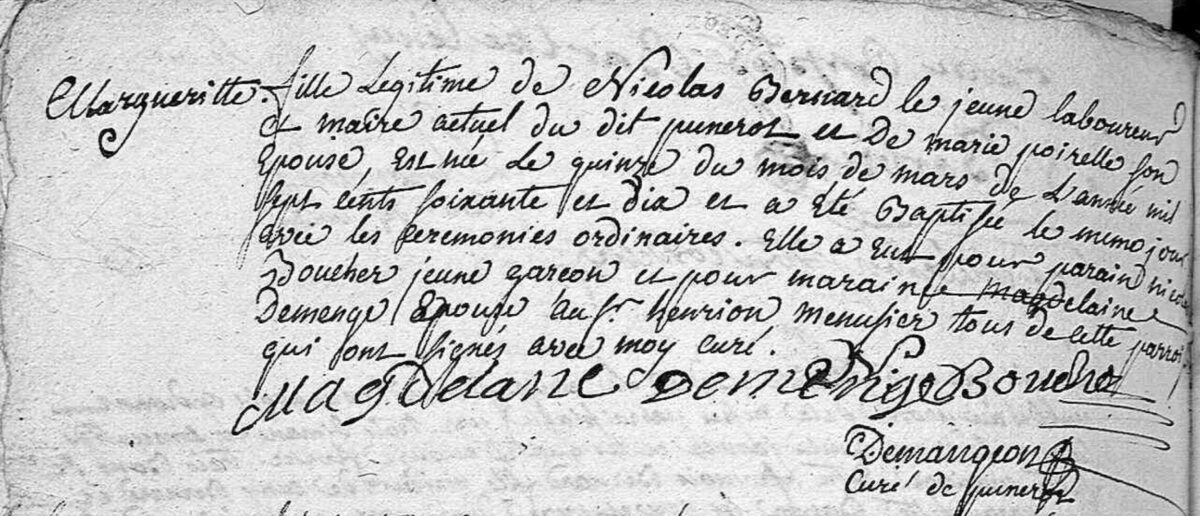 Margueritte. fille Legitime de Nicolas Bernard le jeune laboureur
et maire actuel du dit punerot et De marie poirelle son
Epouse, Est née Le quinze du mois de mars de L'année mil
sept cents soixante et dix et a été Baptisée le meme jour
avec les ceremonies ordinaires. Elle a eut pour parain nicolas
Boucher jeune garçon et pour maraine magdelaine
Demenge Epouse au Sr. henrion menusier tous de cette parroi
qui ont signés avec moy curé.
Magdelane Demenge Bouche
Demangeon
Curé de punerot